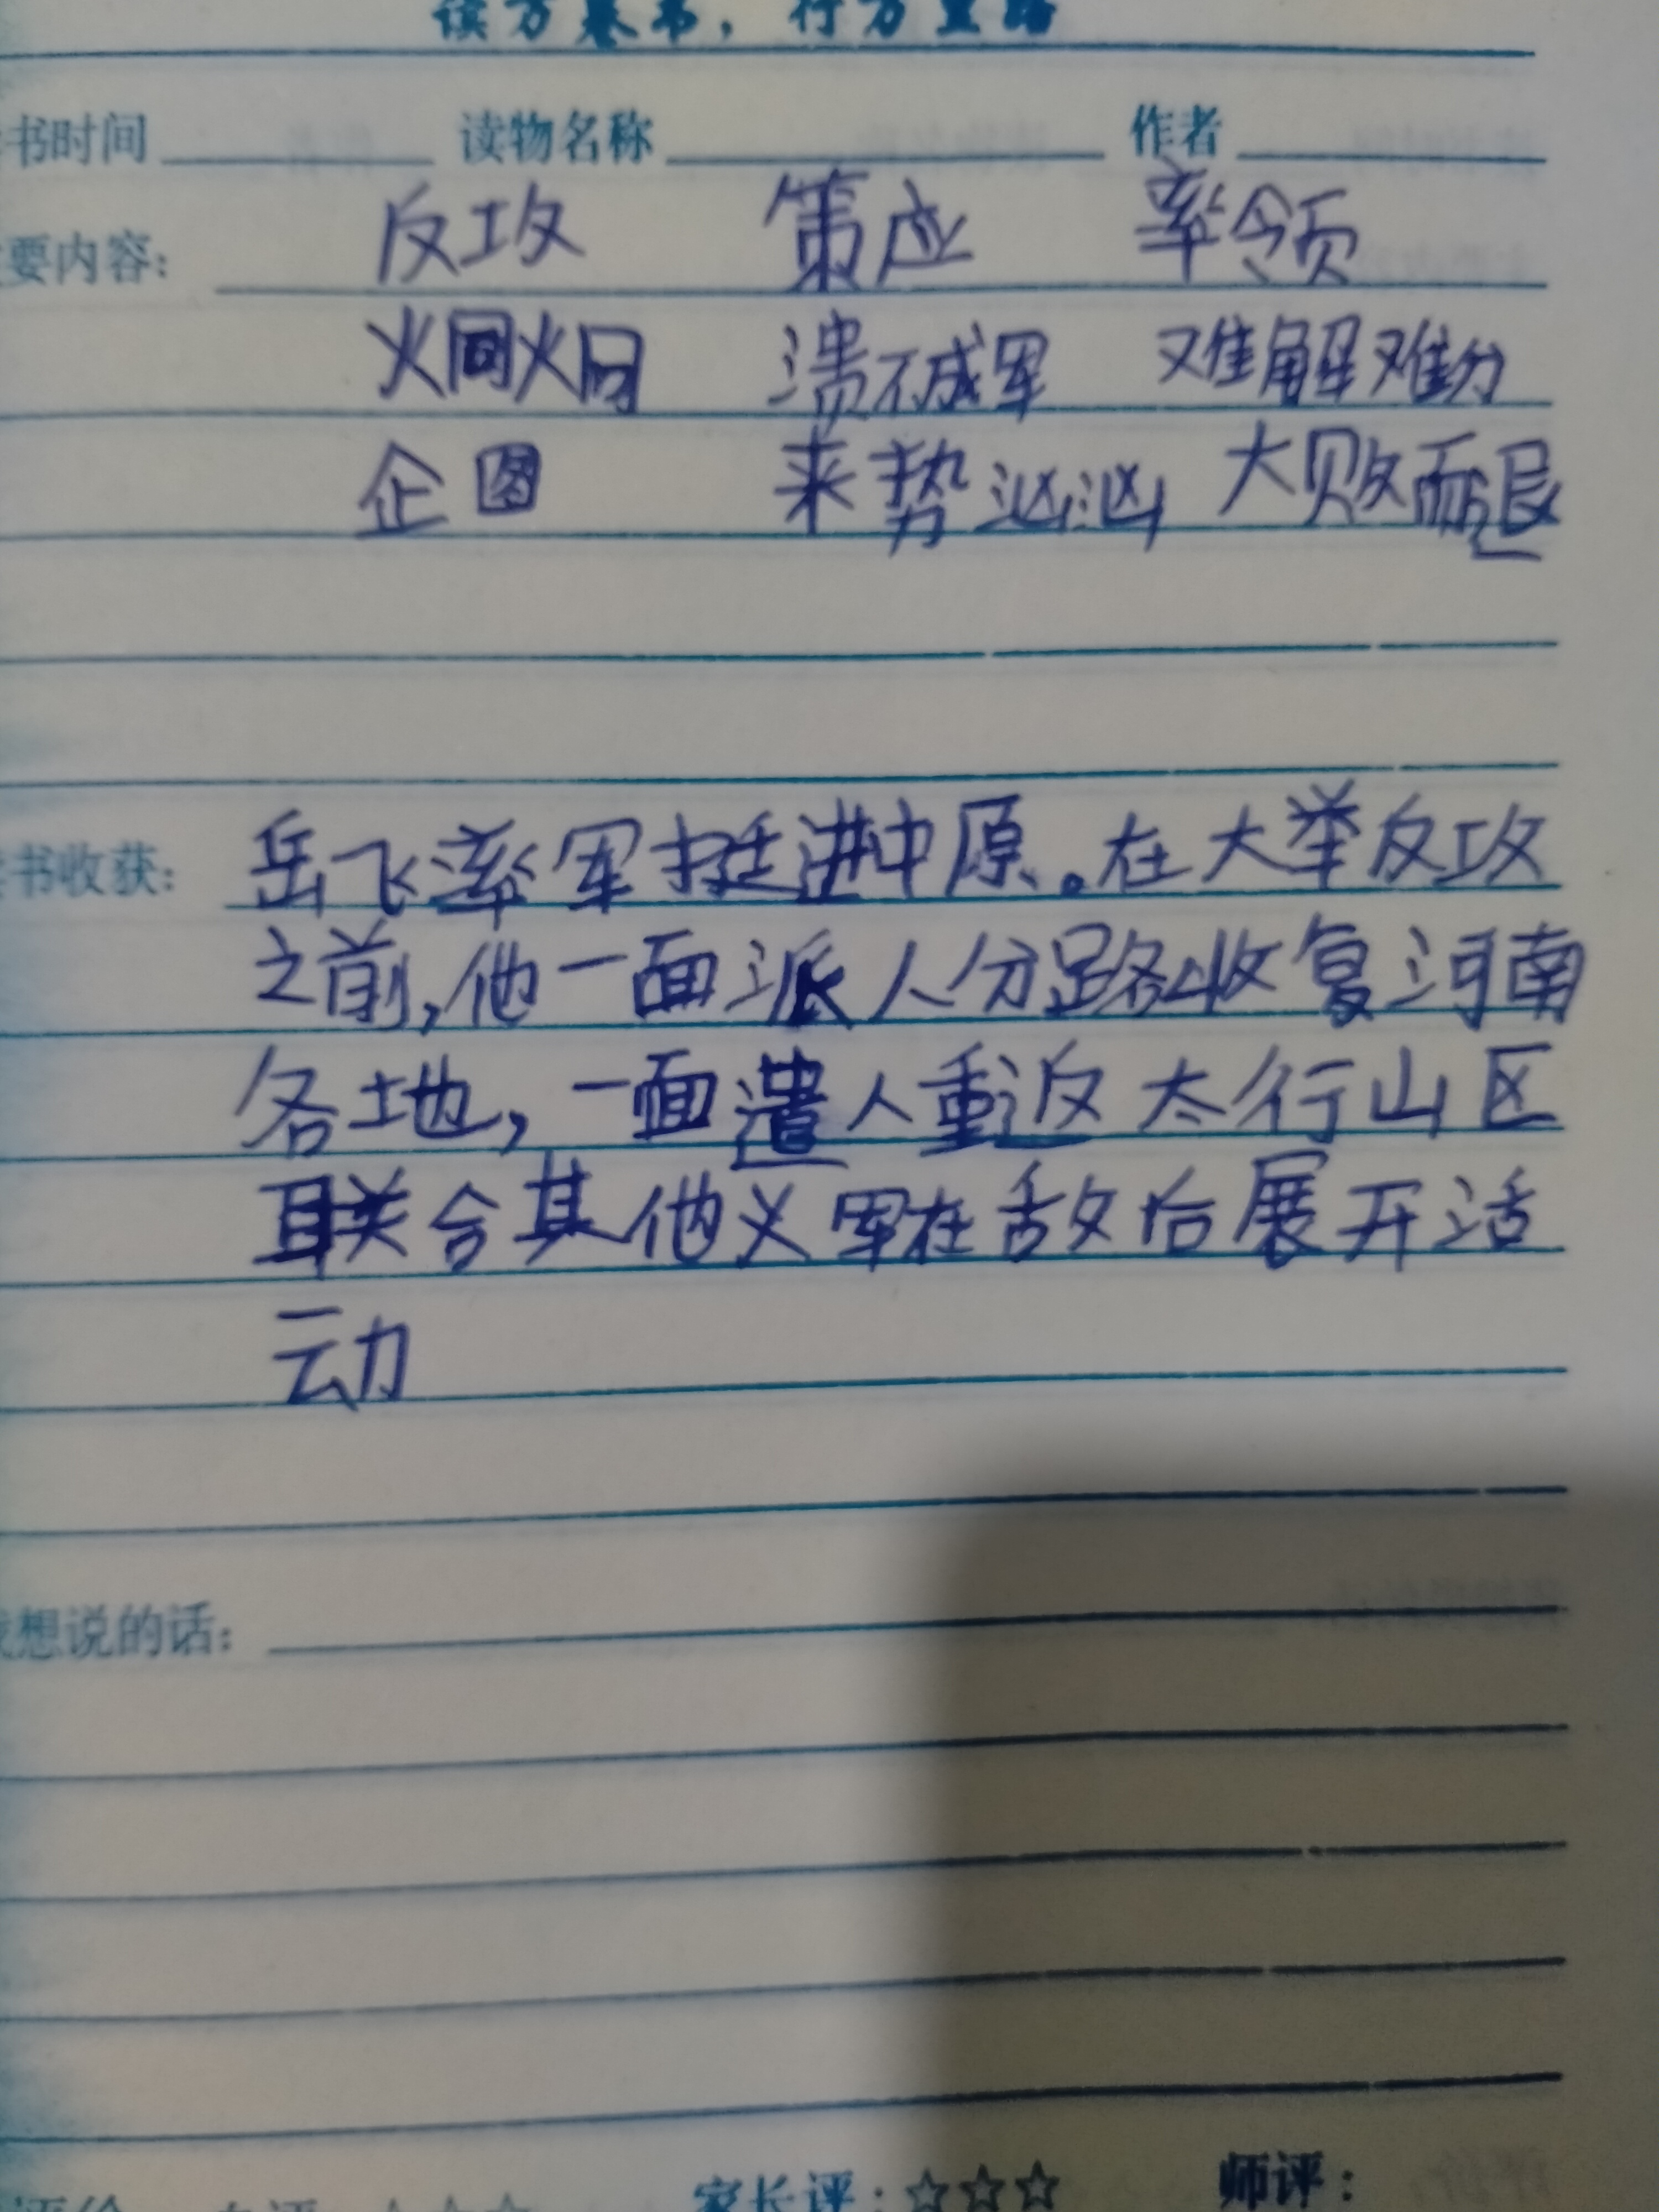 读万卷书，行万里路
书时间 读物名称 作者
要内容： 反攻 策应 率领
炯炯 溃不成军 难解难分
企图 来势汹汹 大败而退
书收获： 岳飞率军挺进中原。在大举反攻
之前，他一面派人分路收复河南
各地，一面遣人重返太行山区
联合其他义军在敌后展开活
动
想说的话：
家长评：☆☆☆ 师评：